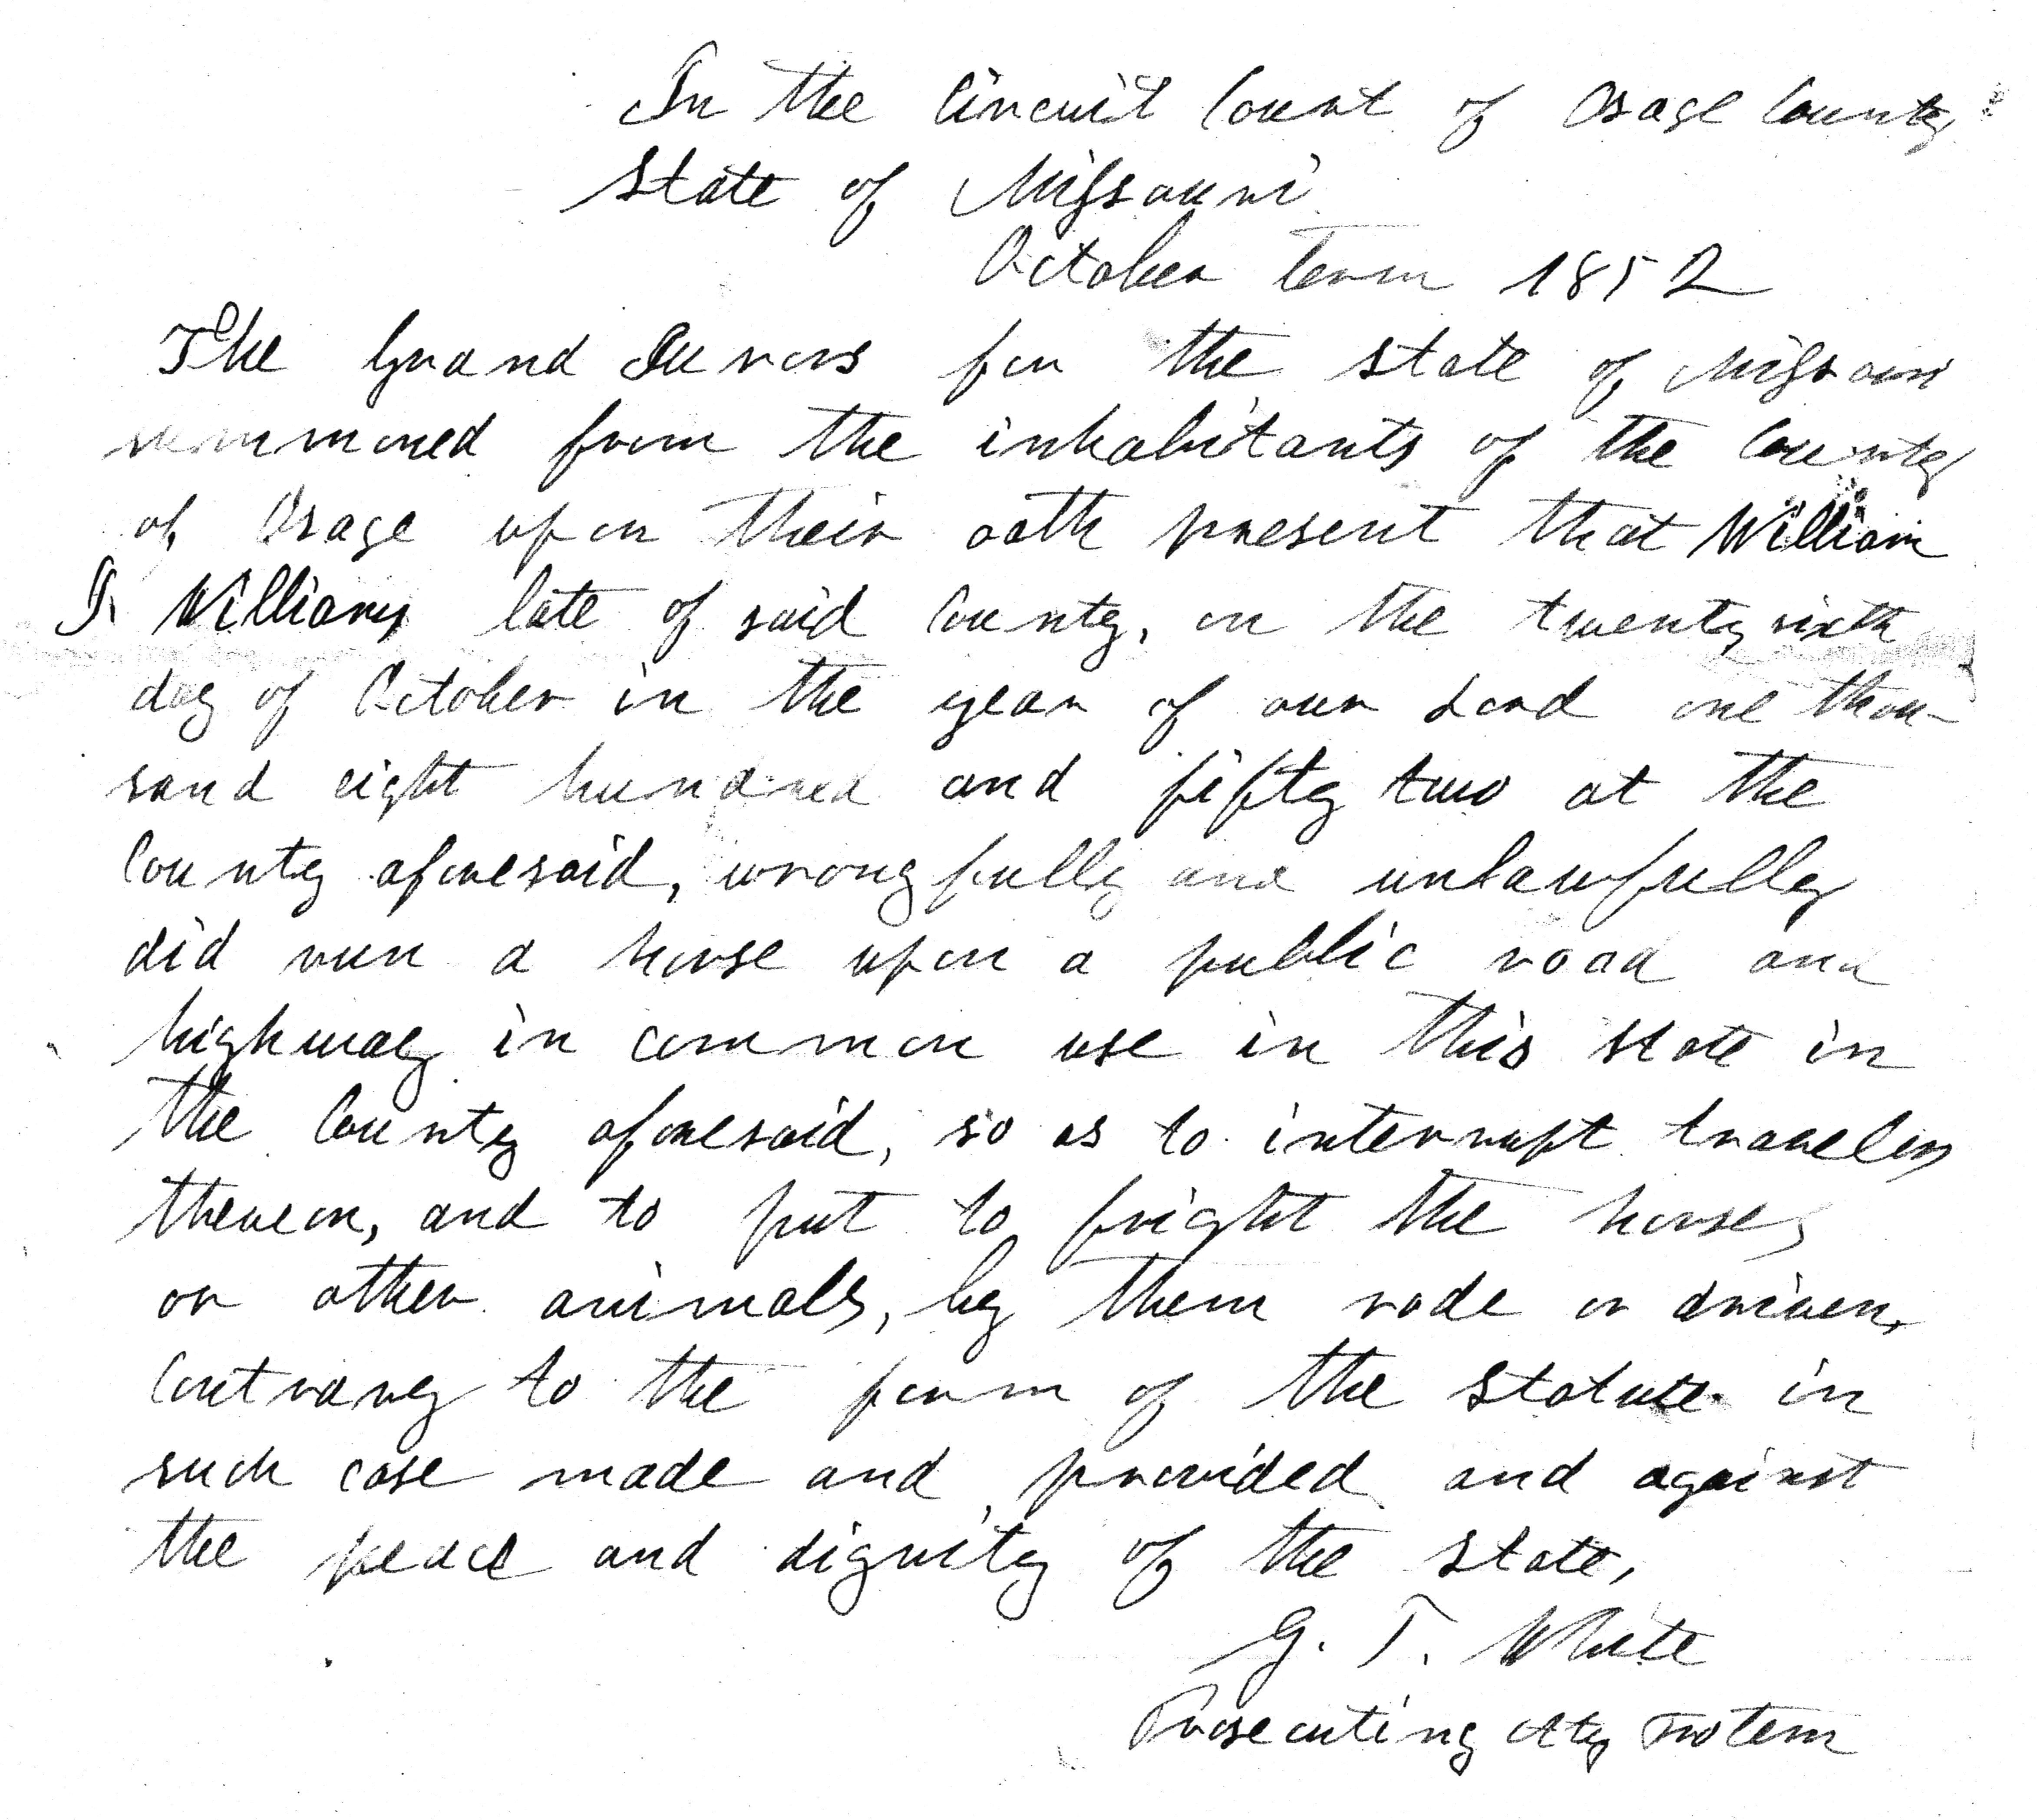 In the Circuit Court of Osage County
State of Missouri
October Term 1852
The Grand Jurors for the state of Missouri
summoned from the inhabitants of the County
of Osage upon their oath present that William
J. Williams late of said County, on the twenty sixth
day of October in the year of our Lord one thou-
sand eight hundred and fifty two at the
County aforesaid, wrongfully and unlawfully
did run a horse upon a public road and
highway in common use in this state in
the County aforesaid, so as to interrupt travelers
thereon, and to put to fright the horses
or other animals, by them rode or driven,
Contrary to the form of the statute in
such case made and provided and against
the peace and dignity of the state,
G. T. White
Prosecuting Aty Protem